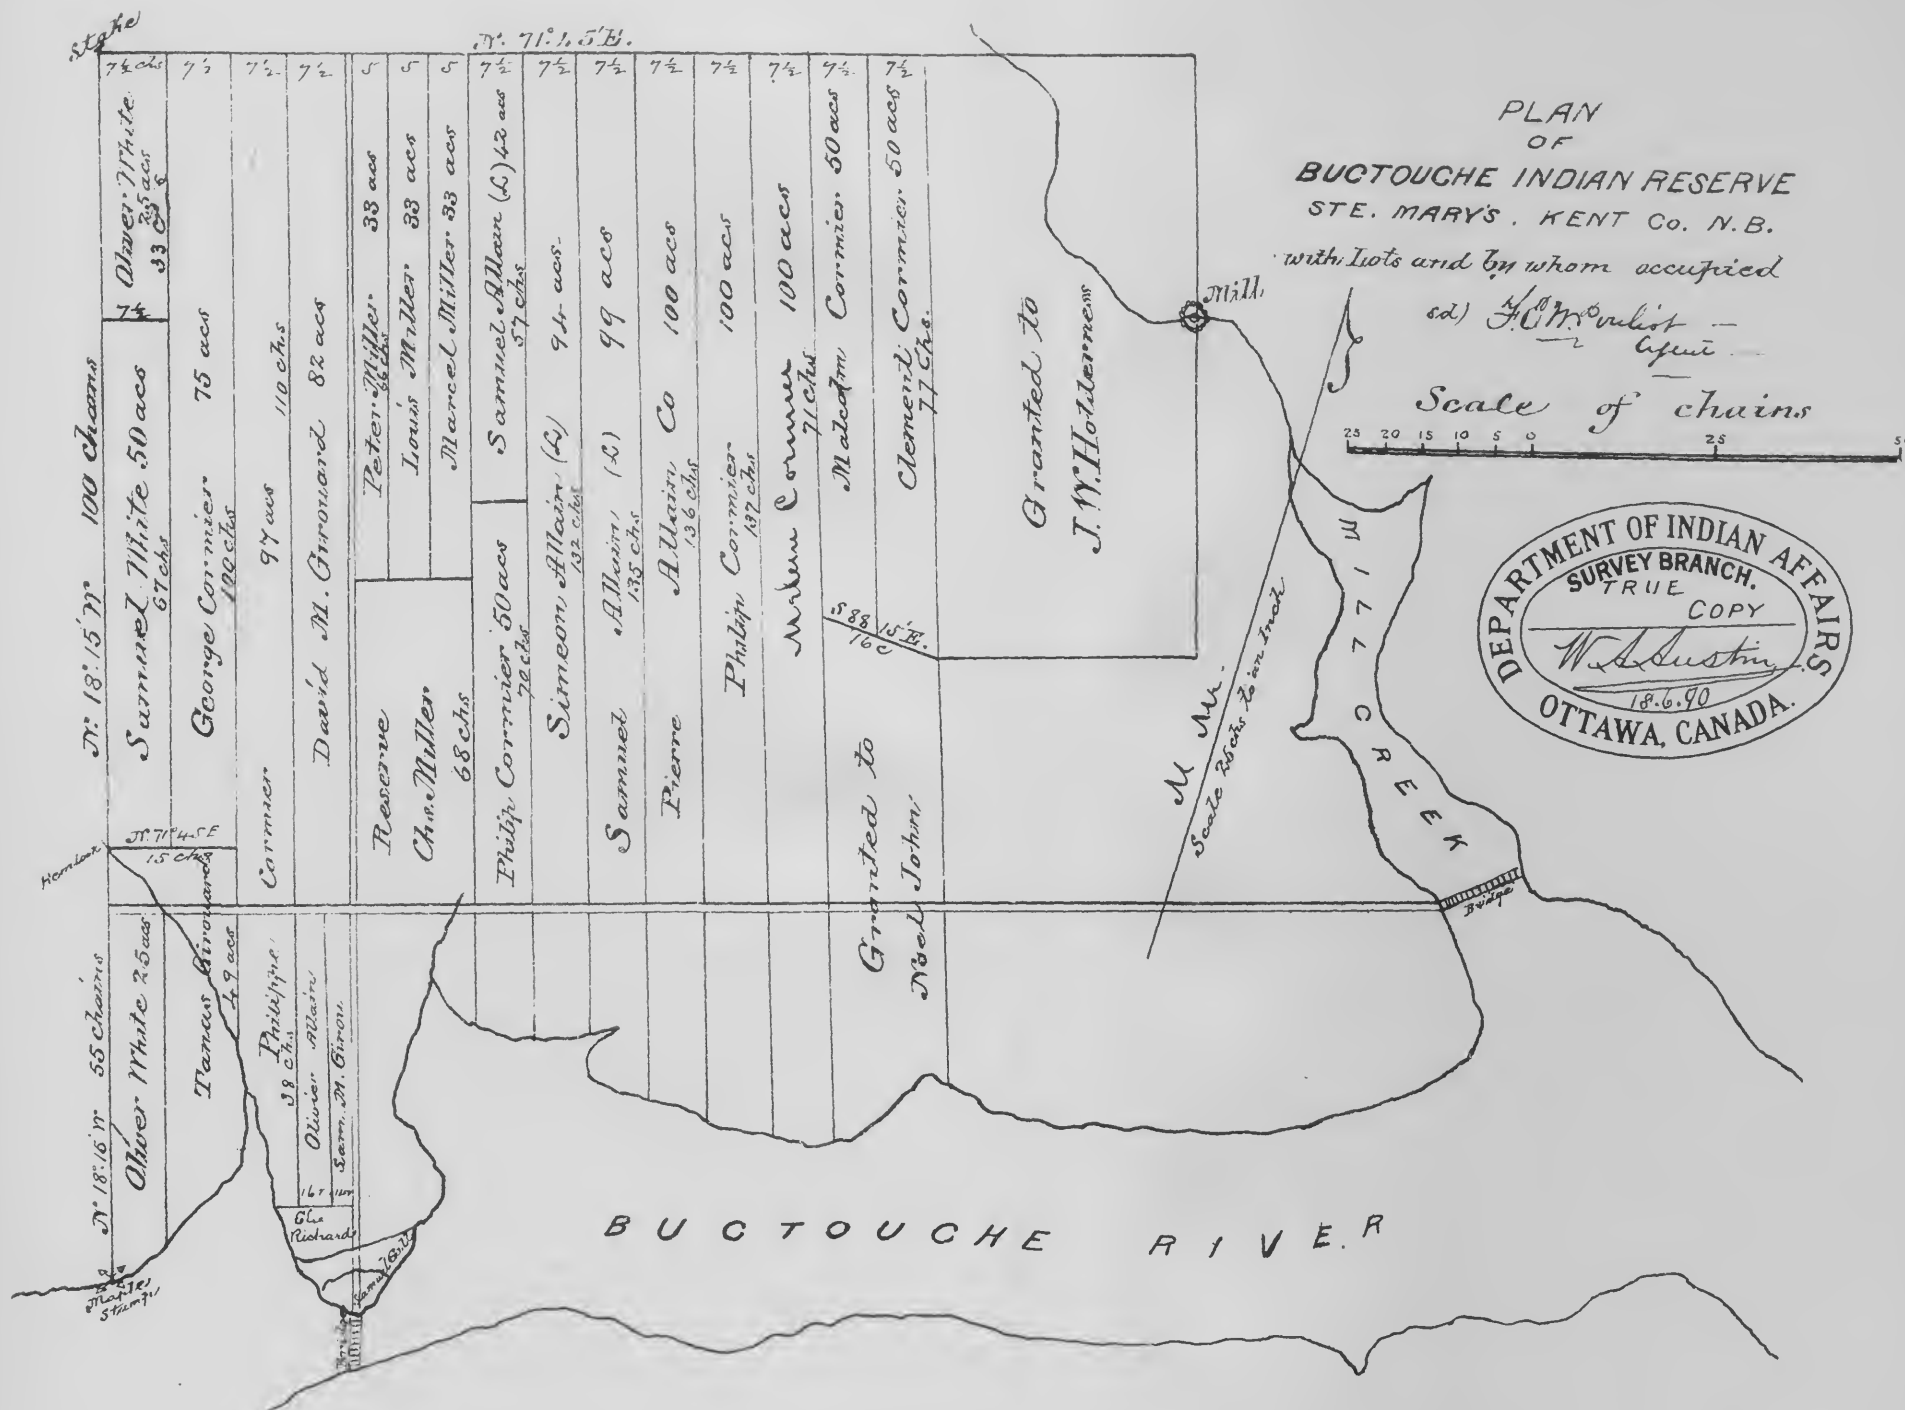 PLAN
OF
BUCTOUCHE INDIAN RESERVE
STE. MARY'S. KENT Co. N.B.
with Lots and by whom occupied
sd)
Agent
Scale of chains
25 20 15 10 5 0 25
DEPARTMENT OF INDIAN AFFAIRS
SURVEY BRANCH.
TRUE
COPY
W A Austin
18.6.90
OTTAWA, CANADA.
Stake
N. 71°.45'E.
7½ chs 7½ 7½ 7½ 5 5 5 7½ 7½ 7½ 7½ 7½ 7½ 7½ 7½
N. 18°.15'W 100 chains
Oliver White
25 acs
33 c
7½
Samuel White 50 acs
67 chs
George Cormier 75 acs
100 chs
Cormier 97 acs 110 chs
David M. Girouard 82 acs
Peter Miller 33 acs
66 chs
Louis Miller 33 acs
Marcel Miller 33 acs
Reserve
Chs. Miller
68 chs
Samuel Allain (L) 42 acs
57 chs
Philip Cormier 50 acs
70 chs
Simeon Allain (L) 94 acs
132 chs
Samuel Allain (L) 99 acs
135 chs
Pierre Allain Co 100 acs
136 chs
Philip Cormier 100 acs
137 chs
Cormier 100 acs
71 chs
Malcolm Cormier 50 acs
Clement Cormier 50 acs
77 Chs.
S 88 15'E.
16 c
Granted to
J.W. Holderness
Granted to
Noel John
Mill
M M
Scale 25 chs to an Inch
MILL CREEK
Bridge
Hemlock
N. 71°45E
15 chs
N 18°.15'W 55 chains
Oliver White 25 acs
Tamas Girouard
49 acs
Philippe
38 chs
Olivier Allain
Sam. M. Girou.
Richard
Bridge
Maple
Stump
BUCTOUCHE RIVER